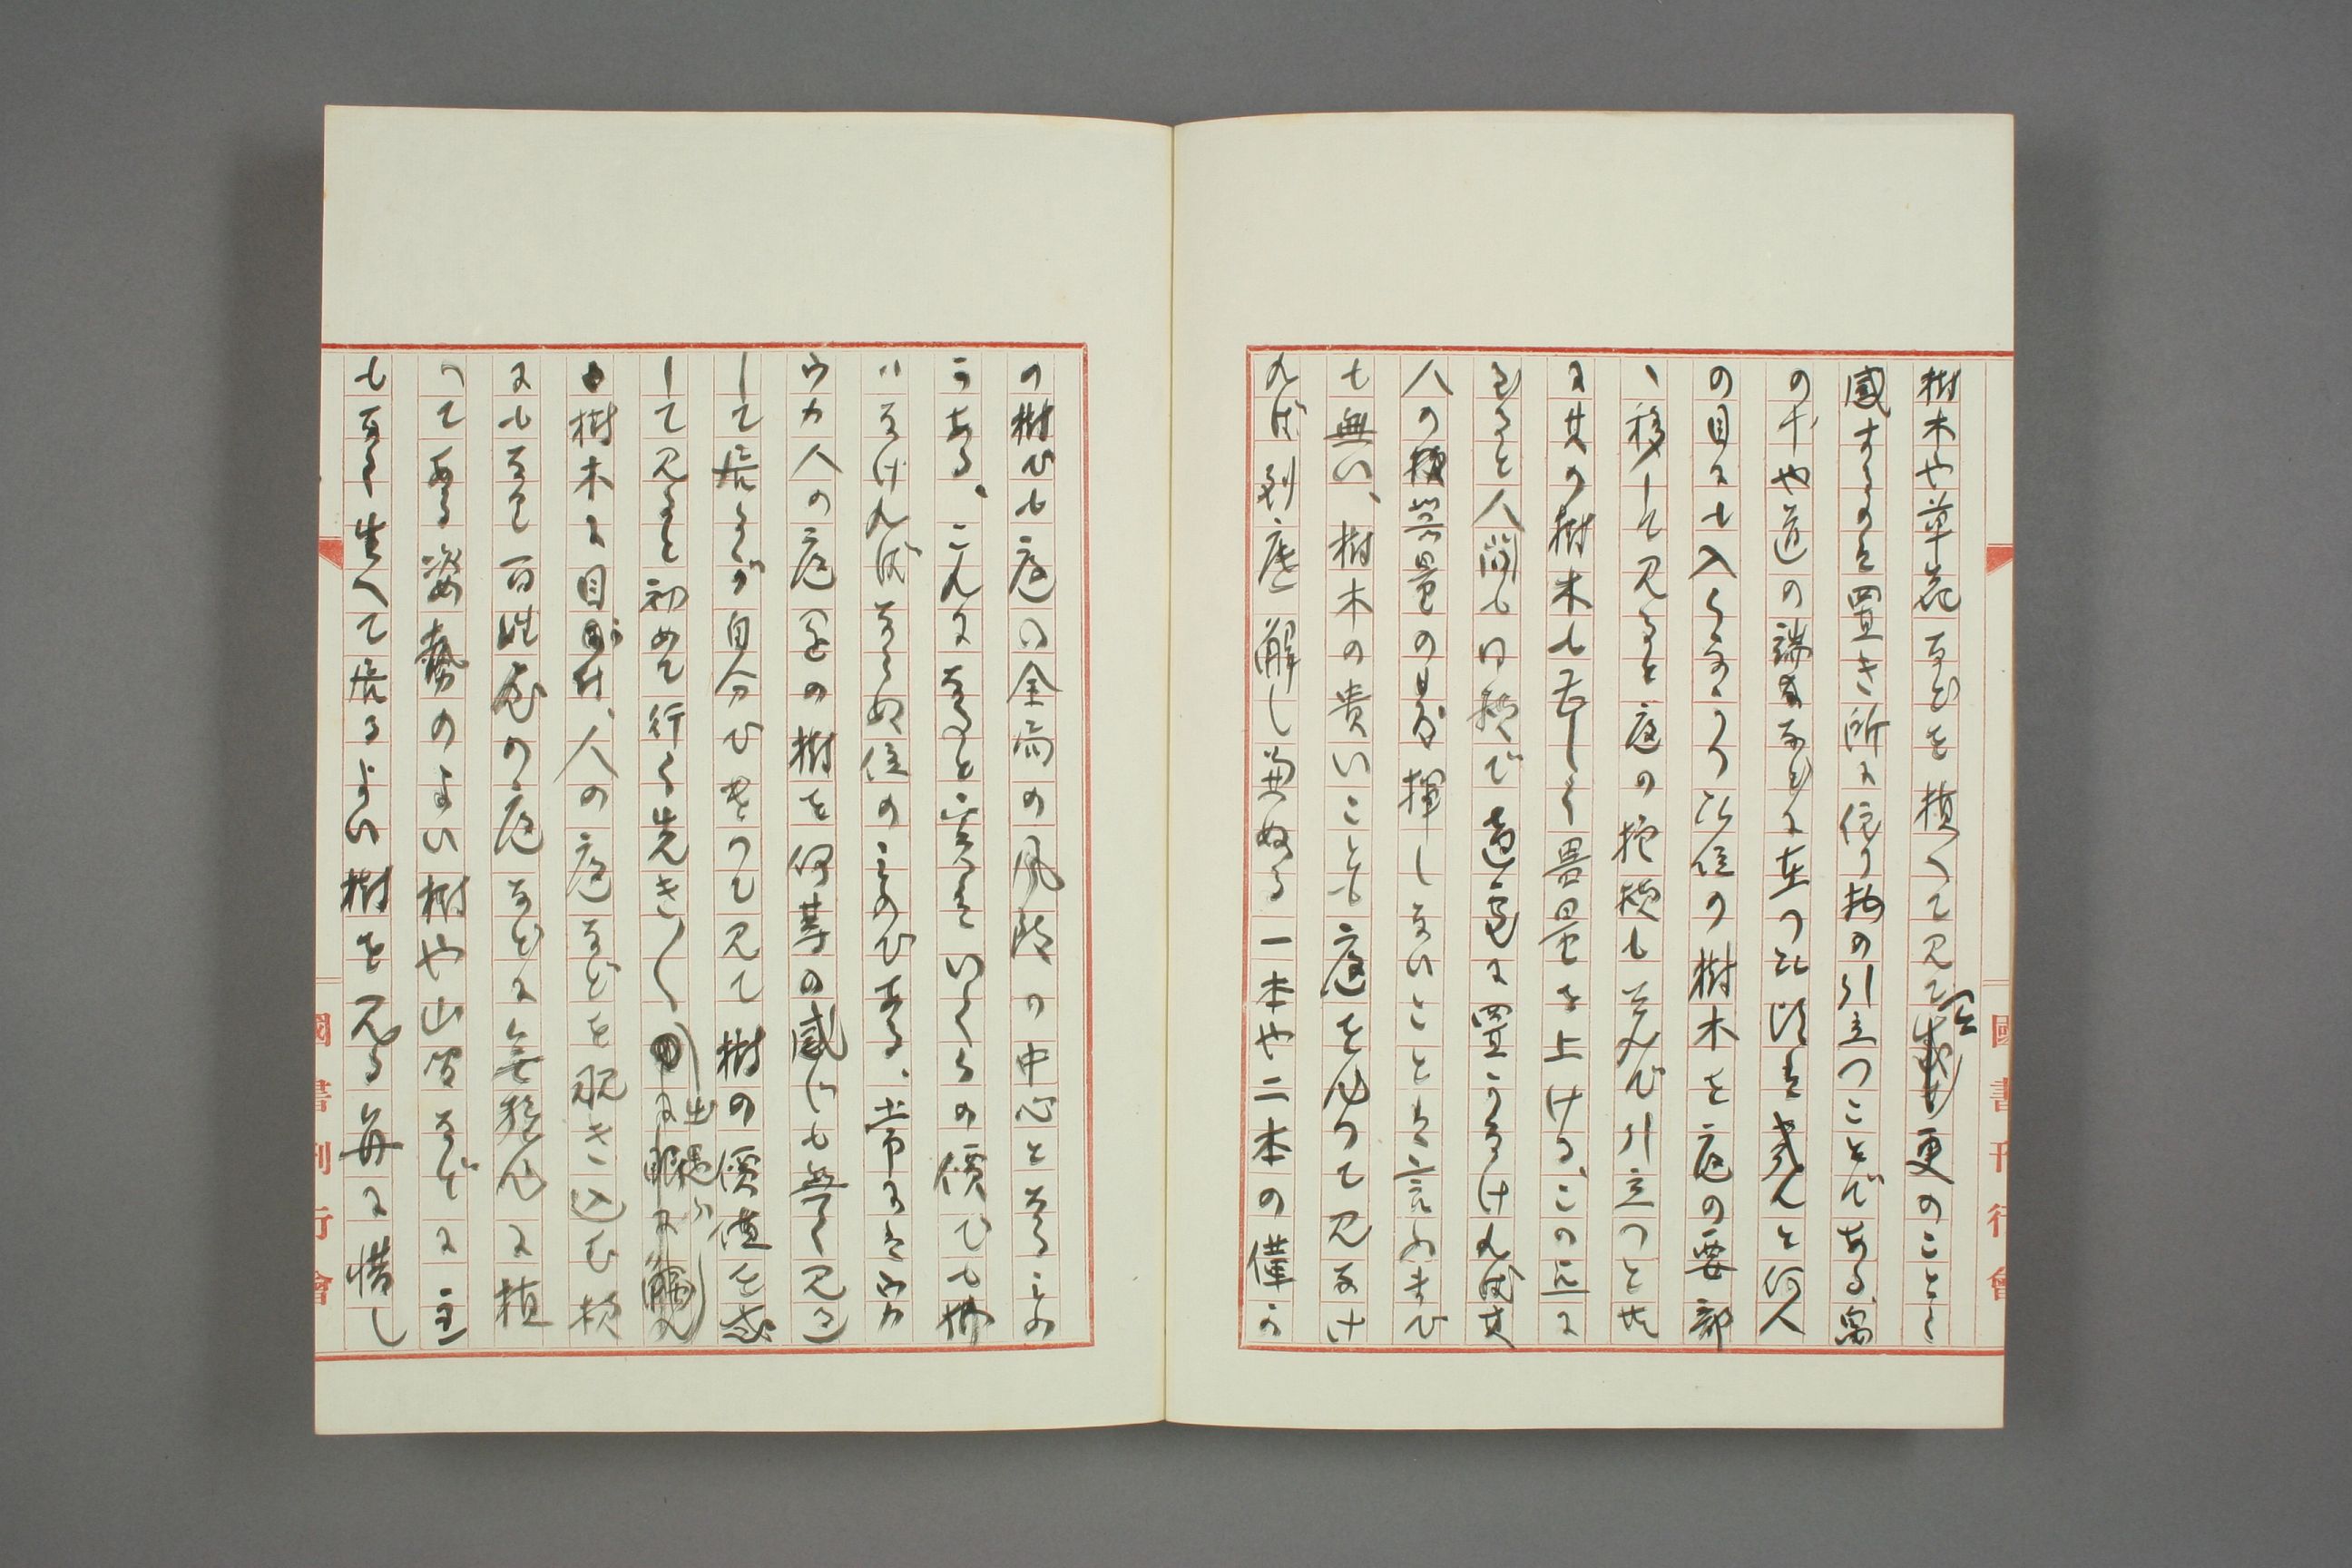 樹木や草花などを植へて見て今更のことく
感するのは置き所に依り物の引立つことである、窓
の下や道の端などに在つた時は殆んと何人
の目にも入らなかつた位の樹木を庭の要部
に移して見ると庭の模様も并んで引立つと共
に其の樹木も著しく器量を上ける、この点に
なると人間も同様で適處に置かなければ其
人の技器量の發揮しないことは言ふまでも
も無い、樹木の貴いことも庭を作つて見なけ
れば到底解し兼ぬる一本や二本の僅か
の樹でも庭の全面の風致の中心となるものか
うある、こんなになると實はいくらの價でも拂
はなけれはならぬ位のものである、平常はウカ
ウカ人の庭園の樹を何等の感じも無く見過
して居るが自分でやつて見て樹の價値を感
して見ると初めて行く先き〱出遇ふ
樹木に目が付、人の庭などを覗き込む様
にもなる百姓家の庭などに無雑作に植
つてある姿勢のよい樹や山間などに
も多く生へて居るよい樹を見る毎に惜し
國書刊行會
國書刊行會